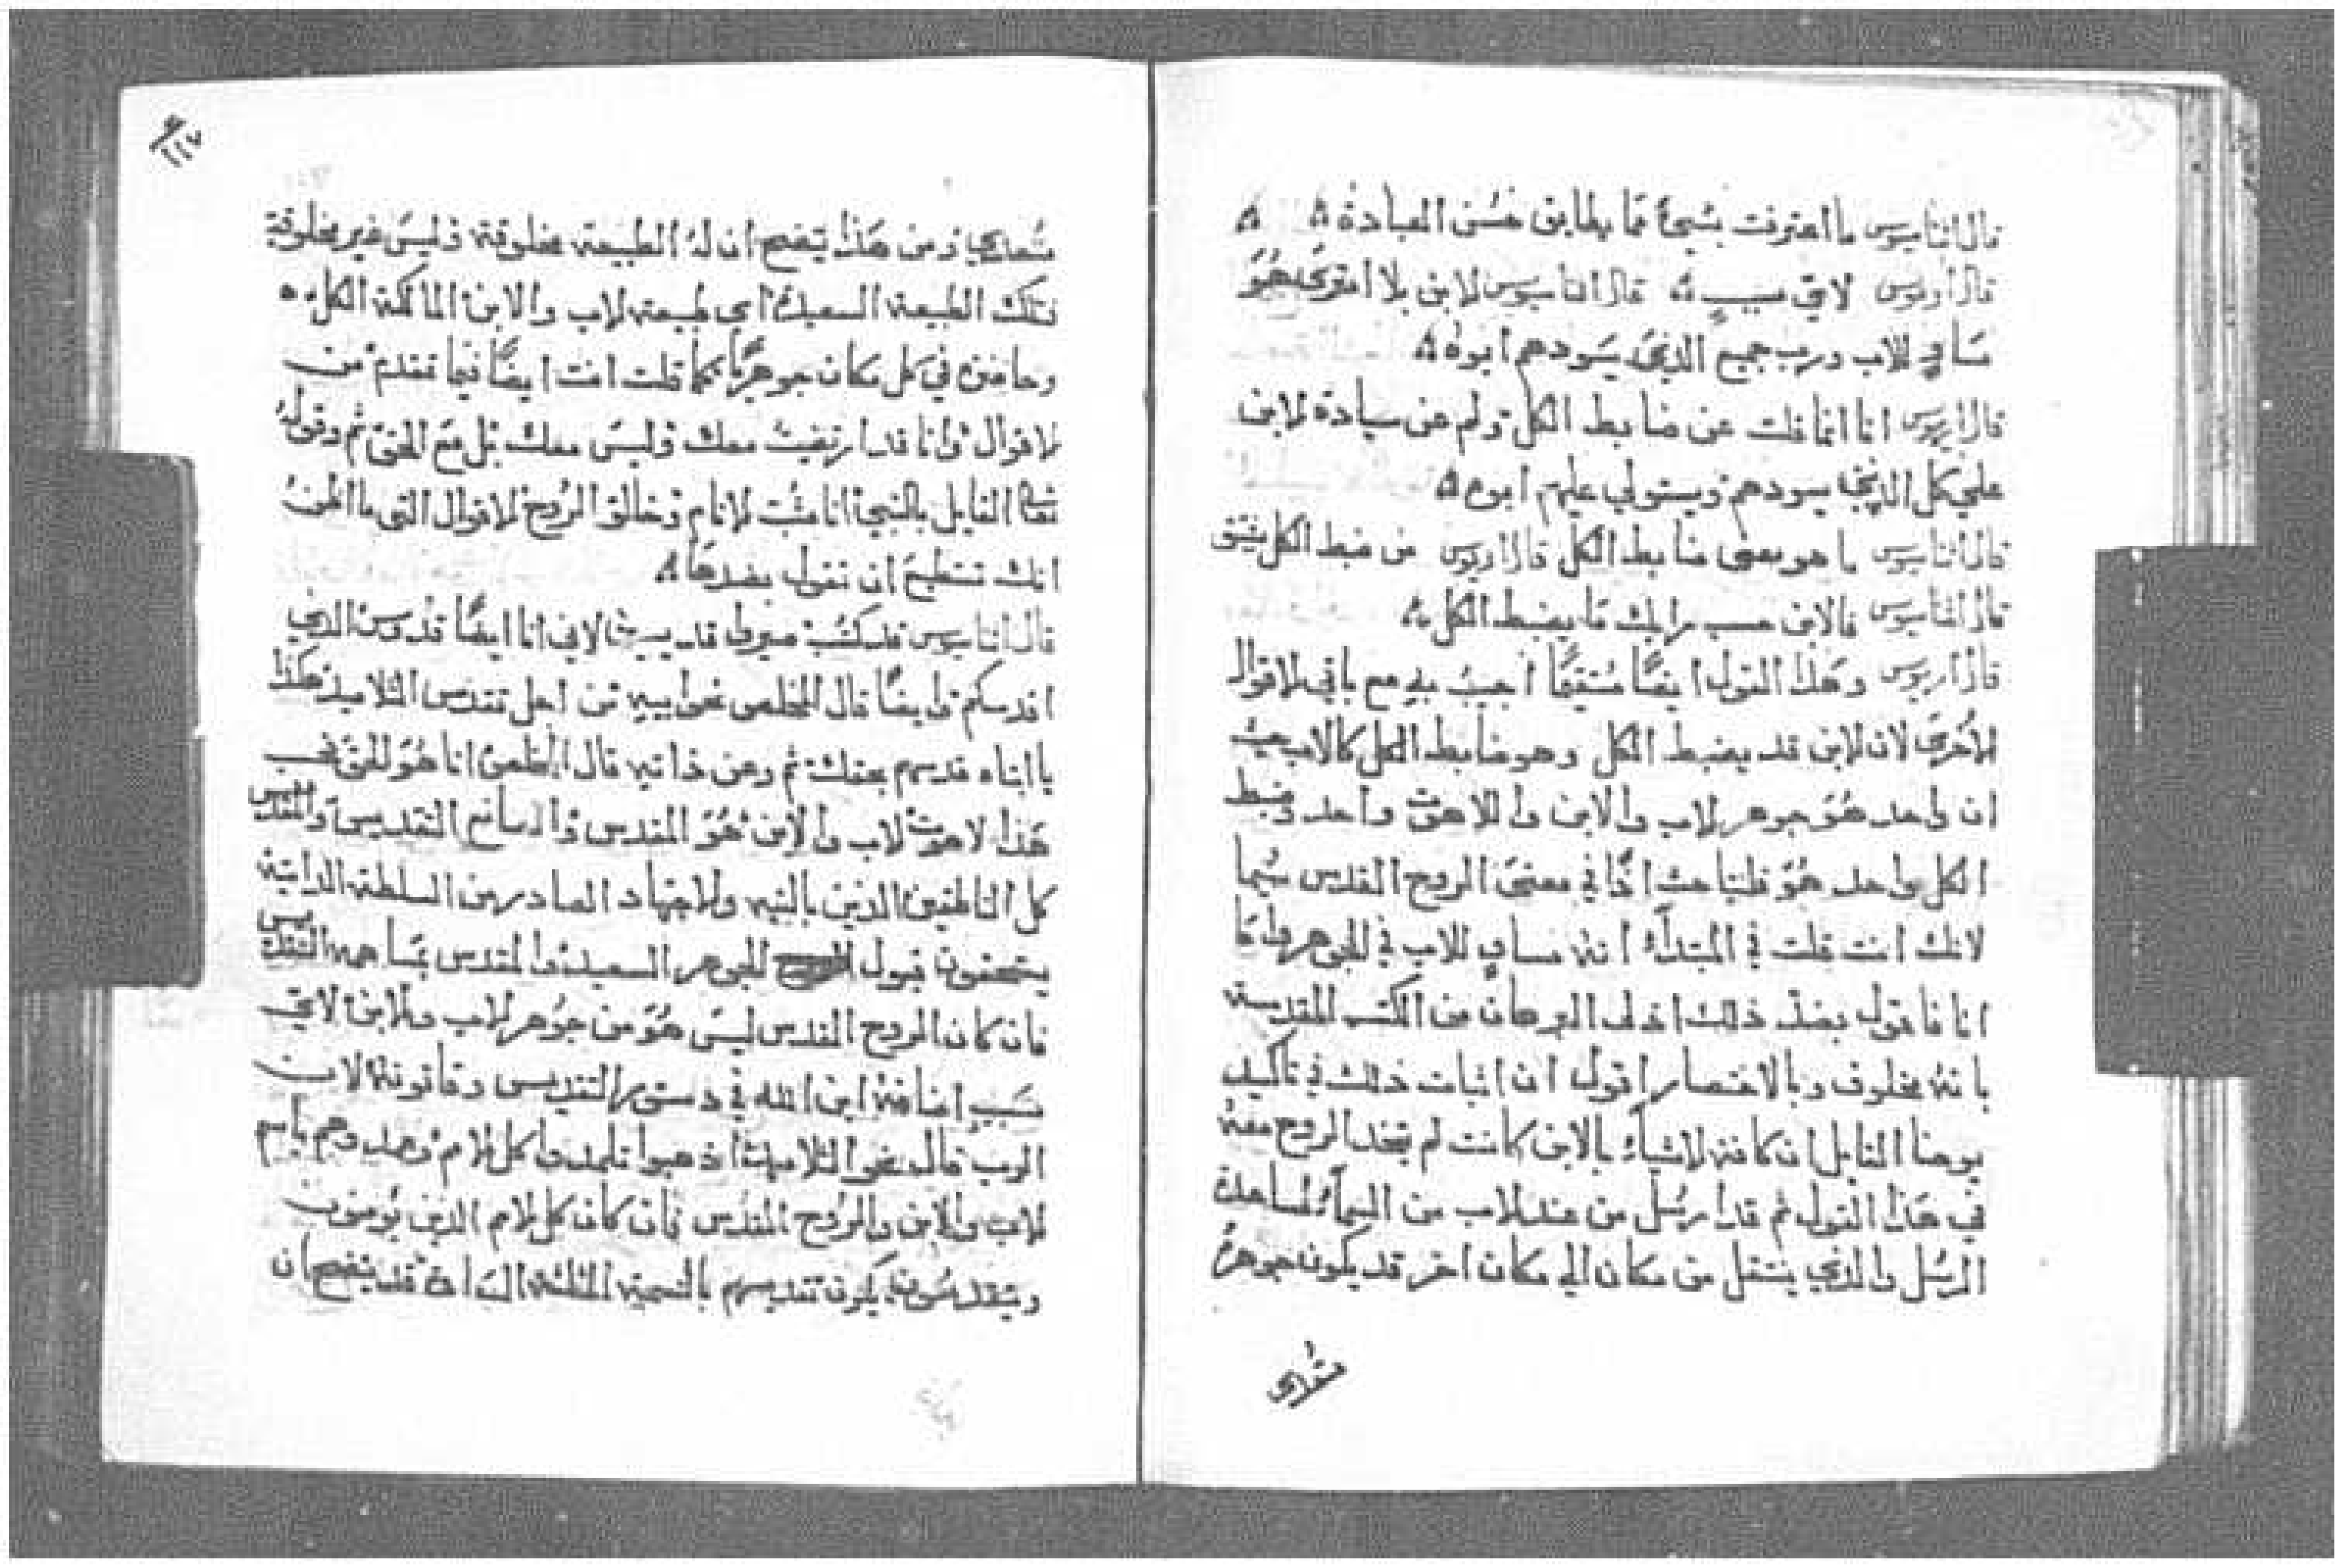 قال اتناسيوس ما اعترفت بشيءً مما يطابق حُسن العبادة ۵ ۵
قال اريوس لاي سببٍ ۵ قال اتناسيوس الابن بلا امترى هُوَ
مساوٍ للاب ورب جميع الذين يسودهم ابوهُ ۵
قال اريوس انا انما قلت عن ضابط الكل ولم عن سيادة الابن
علي كل الذين يسودهم ويستولي عليهم ابوه ۵
قال اتناسيوس ما هو معنى ضابط الكل قال اريوس من ضبط الكل يشتق
قال اتناسيوس فالابن حسب رايك ما يضبط الكل ۵
قال اريوس وهذا القول ايضًا مُستقيمًا اجيبُ بهِ مع باقي الاقوال
الاُخرى لان الابن قد يضبط الكل وهو ضابط الكل كالاب حيث
ان واحد هُوَ جوهر الاب والابن واللاهوت واحد وضبط
الكل واحد هُوَ فلنباحث اذًا في معنى الروح القدس سُيما
لانك انت قلت في المبتدأ انهُ مساوٍ للاب في الجوهر واما
انا فاقول بضد ذلك اخذ البرهان من الكتب المقدسة
بانهُ مخلوق وبالاختصار اقول ان اثبات ذلك في تاكيد
يوحنا القايل ان كافة الاشياء بالابن كانت لم يتخذ الروح معهُ
في هذا القول ثم قد ارسل من عند الاب من السماء لمساعدة
الرسل والذي ينتقل من مكان الي مكان اخر قد يكون جوهرهُ
متعدى
١١٧
متعديا ومن هذا يتضح ان لهُ الطبيعة مخلوقة وليس غير مخلوقة
تلك الطبيعة السعيدة اي طبيعة الاب والابن المالكة الكل ۵
وحاضرة في كل مكان جوهريًا كما قلت انت ايضًا فيما تقدم من
الاقوال وانا قد ارتضيت معك وليس معك بل مع الحق ثم وقولهُ
القايل بالنبي انا مثبت الانام وخالق الروح الاقوال التي ما اظن
انك تستطيع ان تقول بضدها ۵
قال اتناسيوس قد كتب لاني انا ايضًا قدوس الذي
اقدسكم وايضًا قال المخلص نحو ابيه من اجل تقديس التلاميذ هكذا
يا ابتاه قدسهم بحقك ثم وعن ذاته قال المخلص انا هُوَ الحق
هذا لاهوت الاب والابن هُوَ المقدس والمانح التقديس والمقدس
كل الناطقين الذين بالنيه والاجتهاد الصادر من السلطة الذاتية
يستحقون قبول الجوهر السعيد والمقدس مساهمة التقديس
فان كان الروح القدس ليس هُوَ من جوهر الاب والابن لاي
سَببٍ اضافهُ ابن الله في دستور التقديس وقانونهُ لان
الرب قال نحو التلاميذ اذهبوا تلمذوا كل الامم وعمدوهم باسم
الاب والابن والروح القدس فان كان كل الامم الذين يُومنون
ويتقدسُون يكون تقديسهم بالتسمية المثلثة قد يتضح ان